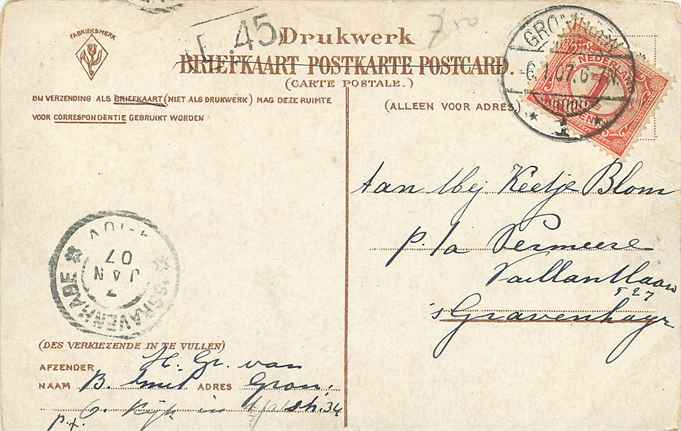 FABRIEKSMERK
T. 45
Drukwerk
BRIEFKAART POSTKARTE POSTCARD.
(CARTE POSTALE.)
BIJ VERZENDING ALS BRIEFKAART (NIET ALS DRUKWERK) MAG DEZE RUIMTE
VOOR CORRESPONDENTIE GEBRUIKT WORDEN
(ALLEEN VOOR ADRES)
GRONINGEN
6.1.07.6-7N
1
NEDERLAND
Aan Mej Keetje Blom
p./a Vermeere
Vaillantlaan
527
's Gravenhage
'S GRAVENHAGE
7
JAN
07
(DES VERKIEZENDE IN TE VULLEN)
AFZENDER H. Gr. van
NAAM B. Smit ADRES Gron.
Kijk in